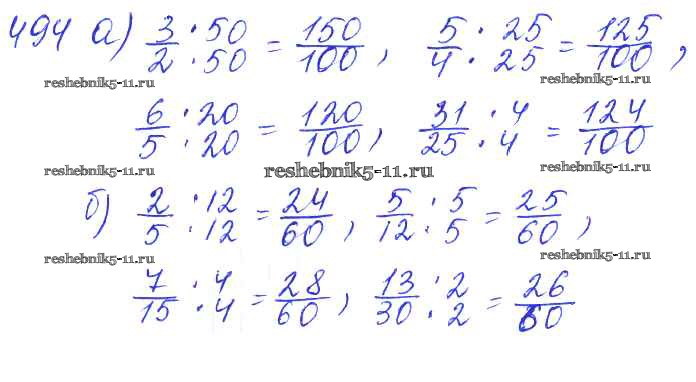 494 а) 3/2 · 50/50 = 150/100, 5/4 · 25/25 = 125/100,
reshebnik5-11.ru reshebnik5-11.ru
6/5 · 20/20 = 120/100, 31/25 · 4/4 = 124/100
reshebnik5-11.ru reshebnik5-11.ru reshebnik5-11.ru
б) 2/5 · 12/12 = 24/60, 5/12 · 5/5 = 25/60,
reshebnik5-11.ru reshebnik5-11.ru
7/15 · 4/4 = 28/60, 13/30 · 2/2 = 26/60